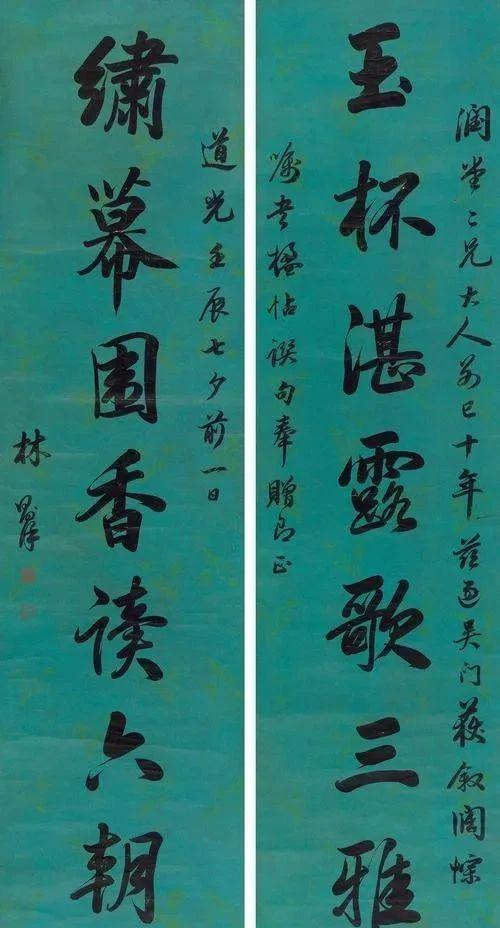 润堂二兄大人别已十年兹过吴门获叙阔悰
玉杯湛露歌三雅
嘱书楹帖撰句奉赠即正
道光壬辰七夕前一日
绣幕围香读六朝
林则徐